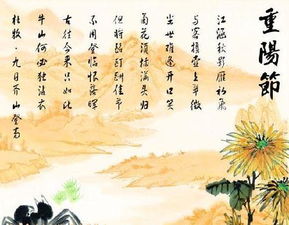 重陽節
江涵秋影雁初飛
与客携壺上翠微
尘世难逢开口笑
菊花須插满头归
但将酩酊酬佳节
不用登临恨落暉
古往今来只如此
牛山何必独沾衣
杜牧·九日齐山登高